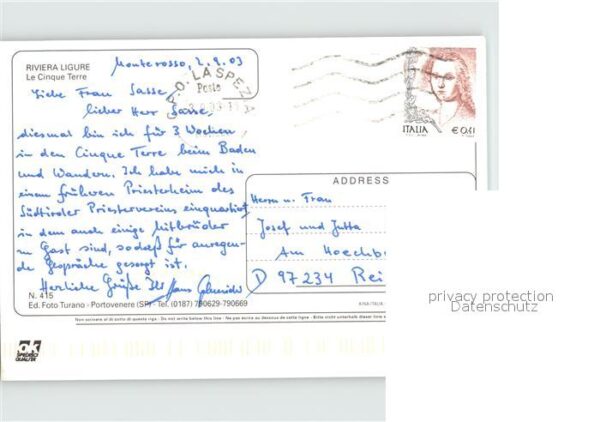 RIVIERA LIGURE
Le Cinque Terre
Monterosso, 2.9.03
Liebe Frau Sasse,
lieber Herr Sasse,
diesmal bin ich für 3 Wochen
in den Cinque Terre beim Baden
und Wandern. Ich habe mich in
einem früheren Priesterheim des
Südtiroler Priestervereins einquartiert
in dem auch einige Mitbrüder
zu Gast sind, sodaß für anregen-
de Gespräche gesorgt ist.
Herzliche Grüße Ihr Hans
N. 415
Ed. Foto Turano - Portovenere (SP) - Tel. (0187) 790629-790669
C.P.O. LA SPEZIA
Poste
ITALIA € 0,41
ADDRESS
Herrn u. Frau
Josef und Jutta
Am Hoechb
D 97234 Rei
Non scrivere al di sotto di questa riga - Do not write below this line - Ne pas écrire au dessous de cette ligne - Bitte nicht unterhalb dieser
OK
SPEDISCI
QUALITA'
privacy protection
Datenschutz